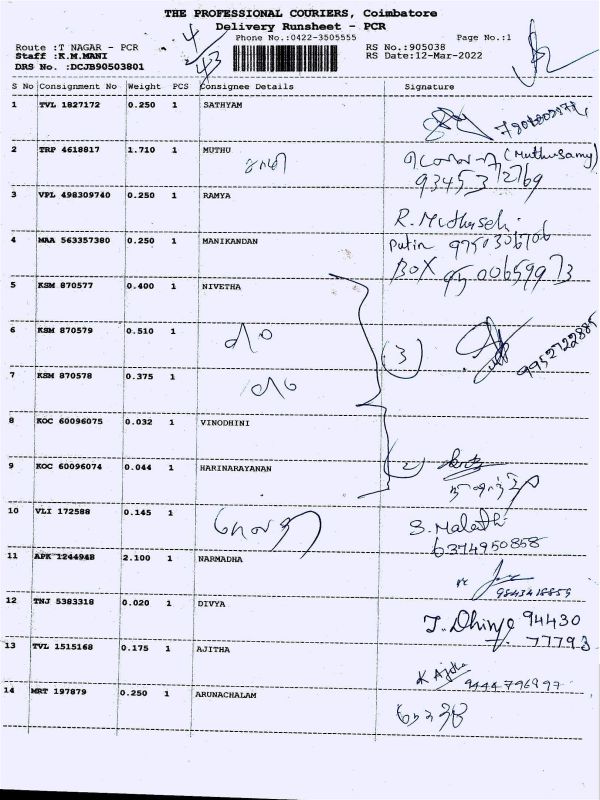 THE PROFESSIONAL COURIERS, Coimbatore
Delivery Runsheet - PCR
Phone No.:0422-3505555 Page No.:1
Route :T NAGAR - PCR RS No.:905038
Staff :K.M.MANI RS Date:12-Mar-2022
DRS No. :DCJB90503801
4
43
S No Consignment No Weight PCS Consignee Details Signature
1 TVL 1827172 0.250 1 SATHYAM
2 TRP 4618817 1.710 1 MUTHU (Muthusamy)
9345372769
3 VPL 498309740 0.250 1 RAMYA
4 MAA 563357380 0.250 1 MANIKANDAN
BOX 9500659973
5 KSM 870577 0.400 1 NIVETHA
6 KSM 870579 0.510 1 (3) 9952722885
7 KSM 870578 0.375 1
8 KOC 60096075 0.032 1 VINODHINI
9 KOC 60096074 0.044 1 HARINARAYANAN (2)
10 VLI 172588 0.145 1 S. Malathi
6374950858
11 APK 1244948 2.100 1 NARMADHA
9843418859
12 TNJ 5383318 0.020 1 DIVYA 94430
77793
13 TVL 1515168 0.175 1 AJITHA
K Ajitha
9444796997
14 MRT 197879 0.250 1 ARUNACHALAM